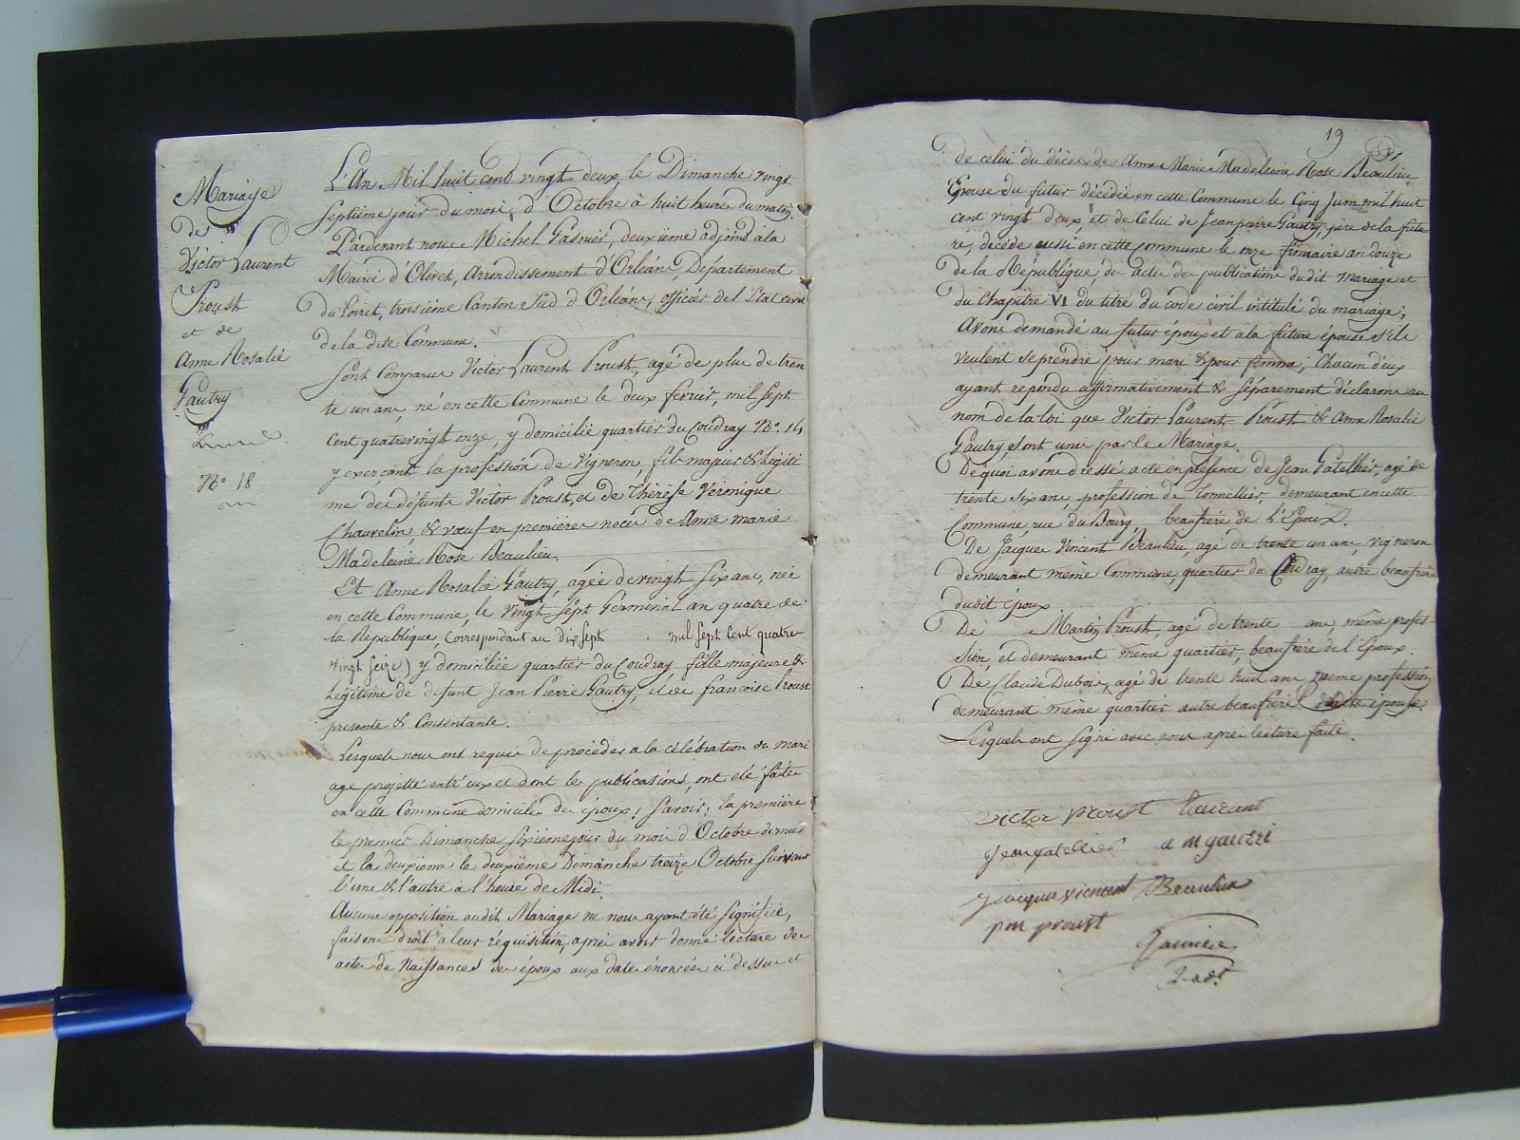 Mariage
de
Victor Laurent
Proust
et de
Anne Rosalie
Gautry
N.º 18
L'An Mil huit cent vingt deux, le Dimanche vingt
septième jour du mois d'Octobre à huit heures du matin.
Pardevant nous Michel Gasnier, deuxième adjoint à la
Mairie d'Olivet, Arrondissement d'Orléans, Département
du Loiret, troisième Canton Sud d'Orléans, officier de l'Etat civil
de la dite Commune.
sont Comparus Victor Laurent Proust, agé de plus de tren
te un ans, né en cette Commune le deux fevrier, mil sept
cent quatrevingt onze, y domicilié quartier du Coudray N.º 14,
y exerçant la profession de Vigneron, fils majeur & légiti
me des défunts Victor Proust, et de Thérèse Véronique
Chauvelin, & veuf en premières noces de Anne Marie
Madeleine Rose Beaulieu.
Et Anne Rosalie Gautry, agée de vingt six ans, née
en cette Commune, le vingt sept Germinal an quatre de
la République, (Correspondant au dix sept mil sept cent quatre
vingt seize) y domiciliée quartier du Coudray fille majeure &
légitime de défunt Jean Pierre Gautry, et de françoise Proust
presente & consentante.
Lesquels nous ont requis de procéder à la célébration du mari
age projetté entr'eux et dont les publications, ont été faites
en cette Commune domicile des époux; Savoir: la première
le premier Dimanche sixième jour du mois d'Octobre dernier
et la deuxième le deuxième Dimanche treize Octobre suivant
l'une & l'autre à l'heure de Midi.
Aucune opposition audit Mariage ne nous ayant été signifiée,
faisant droit à leur réquisition, après avoir donné lecture des
actes de Naissances des époux aux dates énoncées ci dessus et
19
de celui du décès de Anne Marie Madeleine Rose Beaulieu
Epouse du futur décédée en cette Commune le Cinq Juin mil huit
cent vingt deux, et de Celui de Jean pierre Gautry, père de la futu
re, décédé aussi en cette commune le onze frimaire an douze
de la République, des actes de publications dudit mariage et
du Chapitre VI du titre du code civil intitulé du mariage;
Avons demandé au futur époux et à la future épouse s'ils
veulent se prendre pour mari & pour femme; Chacun d'eux
ayant repondu affirmativement & séparement déclarons au
nom de la loi que Victor Laurent Proust & Anne Rosalie
Gautry, sont unis par le Mariage.
De quoi avons dressé acte en présence de Jean Gatellier, agé de
trente six ans, profession de Tonnellier, demeurant en cette
Commune, rue du Bourg, beaufrère de l'Epoux.
De Jacques Vincent Beaulieu, agé de trente un ans, vigneron
demeurant même Commune, quartier du Coudray, autre beaufrère
dudit époux
De Martin Proust, agé de trente ans, même profes
sion, et demeurant même quartier, beaufrère de l'Epoux.
De Claude Dubois, agé de trente huit ans, même profession
demeurant même quartier autre beaufrère de la dite épouse;
Lesquels ont signé avec nous après lecture faite.
victor proust laurant
Jean gatellier a m gautri
jacques viencent Beaulieu
pm proust
Gasnier
2. adt